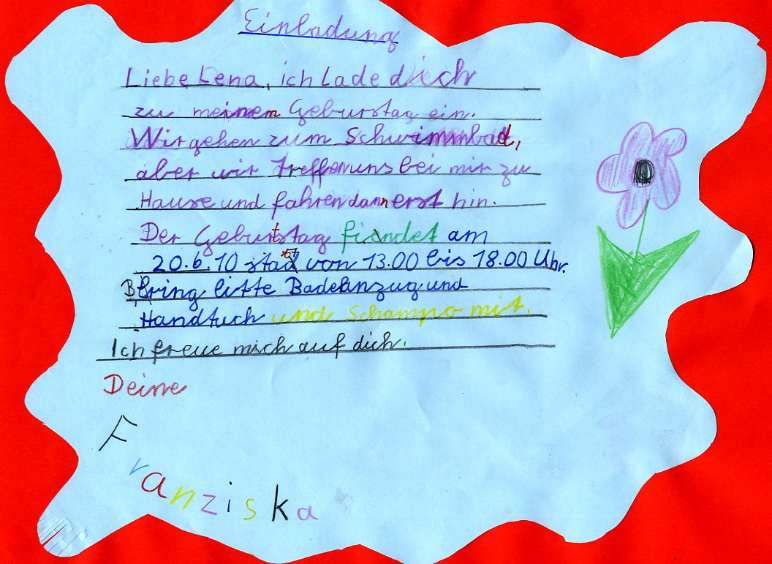 Einladung
Liebe Lena, ich lade dich
zu meinem Geburstag ein.
Wir gehen zum Schwimmbad,
aber wir Treffen uns bei mir zu
Hause und fahren dann erst hin.
Der Geburtstag findet am
20.6.10 statt von 13.00 bis 18.00 Uhr.
Bring bitte Badeanzug und
Handtuch und Schampo mit.
Ich freue mich auf dich.
Deine
Franziska